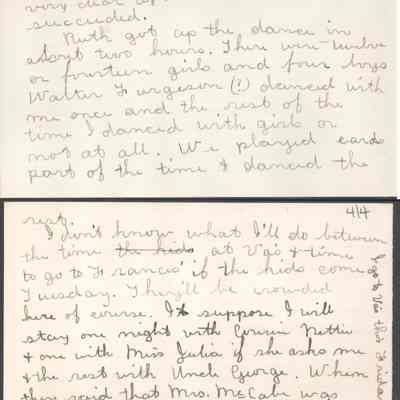 very
succeeded.
Ruth got up the dance in
about two hours. There were twelve
or fourteen girls and four boys
Walter Furgeson (?) danced with
me once and the rest of the
time I danced with girls or
not at all. We played cards
part of the time & danced the
4/4
rest.
I don't know what I'll do between
the time the kids at Vi's & time
to go to Francis' if the kids come
Tuesday. They'll be crowded
here of course. I suppose I will
stay one night with Cousin Nettie
& one with Miss Julia if she asks me
& the rest with Uncle George. When
said that Mrs. McCabe was
I go to Vi's this Friday